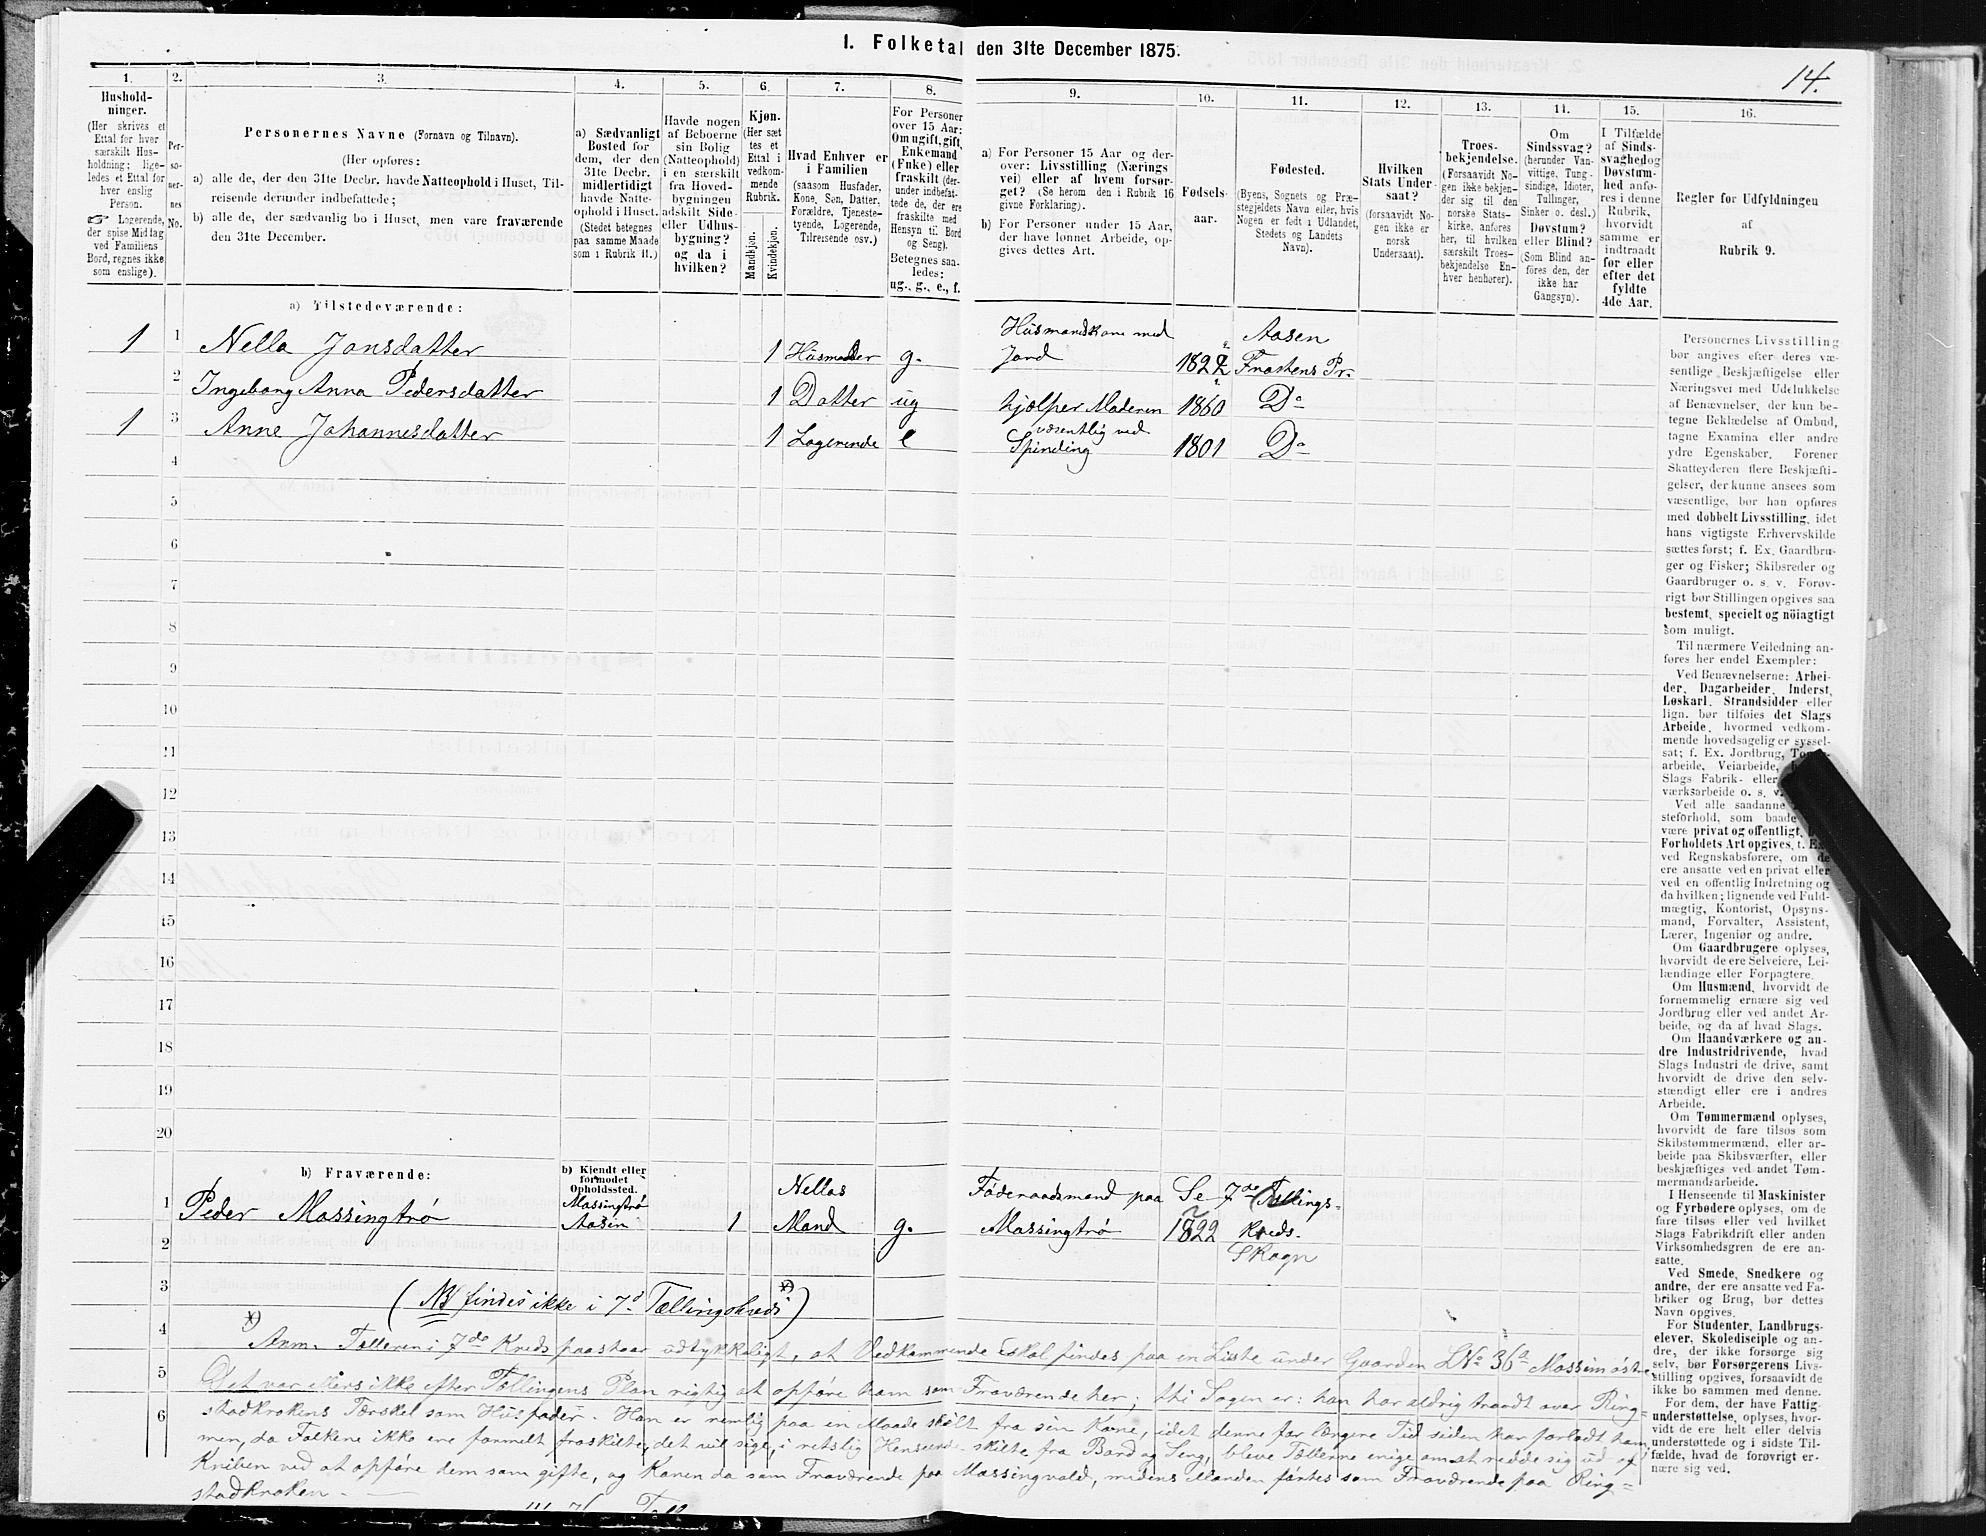 I. Folketal den 31te December 1875.
14.
1.
Hushold-
ninger.
(Her skrives et
Ettal for hver
særskilt Hus-
holdning; lige-
ledes et Ettal for
hver enslig
Person.
☞ Logerende,
der spise Middag
ved Familiens
Bord, regnes ikke
som enslige).
2.
Per-
so-
ner-
nes
No.
3.
Personernes Navne (Fornavn og Tilnavn).
(Her opføres:
a) alle de, der den 31te Decbr. havde Natteophold i Huset, Til-
reisende derunder indbefattede;
b) alle de, der sædvanlig bo i Huset, men vare fraværende
den 31te December.
4.
a) Sædvanligt
Bosted for
dem, der den
31te Decbr.
midlertidigt
havde Natte-
ophold i Huset.
(Stedet betegnes
paa samme Maade
som i Rubrik 11.)
5.
Havde nogen
af Beboerne
sin Bolig
(Natteophold)
i en særskilt
fra Hoved-
bygningen
adskilt Side-
eller Udhus-
bygning?
og da i
hvilken?
6.
Kjøn.
(Her sæt
tes et
Ettal i
vedkom-
mende
Rubrik.
Mandkjøn.
Kvindekjøn.
7.
Hvad Enhver er
i Familien
(saasom Husfader,
Kone, Søn, Datter,
Forældre, Tjeneste-
tyende, Logerende,
Tilreisende osv.)
8.
For Personer
over 15 Aar:
Om ugift, gift,
Enkemand
(Enke) eller
fraskilt (der-
under indbefat-
tede de, der ere
fraskilte med
Hensyn til Bord
og Seng).
Betegnes saa-
ledes:
ug., g., e., f.
9.
a) For Personer 15 Aar og der-
over: Livsstilling (Nærings
vei) eller af hvem forsør-
get? (Se herom den i Rubrik 16
givne Forklaring).
b) For Personer under 15 Aar,
der have lønnet Arbeide, op-
gives dettes Art.
10.
Fødsels-
aar.
11.
Fødested.
(Byens, Sognets og Præ-
stegjeldets Navn eller, hvis
Nogen er født i Udlandet,
Stedets og Landets
Navn).
12.
Hvilken
Stats Under-
saat?
(forsaavidt No-
gen ikke er
norsk
Undersaat).
13.
Troes-
bekjendelse.
(Forsaavidt No-
gen ikke bekjen-
der sig til den
norske Stats-
kirke, anføres
her, til hvilken
særskilt Troes-
bekjendelse En-
hver henhører).
14.
Om
Sindssvag?
(herunder Van-
vittige, Tung-
sindige, Idioter,
Tullinger,
Sinker o. desl.)
Døvstum?
eller Blind?
(Som Blind an-
føres den, der
ikke har
Gangsyn).
15.
I Tilfælde
af Sinds-
svaghed og
Døvstum-
hed anfø-
res i denne
Rubrik,
hvorvidt
samme er
indtraadt
før eller
efter det
fyldte
4de Aar.
16.
Regler for Udfyldningen
af
Rubrik 9.
a) Tilstedeværende:
1 1 Nella Jonsdatter 1 Husmoder g. Husmandskone med Jord 1822 Aasen Frostens Pr.
2 Ingeborg Anna Pedersdatter 1 Datter ug hjælper Moderen 1860 Do
1 3 Anne Johannesdatter 1 Logerende e væsentlig ved Spinding 1801 Do
4
5
6
7
8
9
10
11
12
13
14
15
16
17
18
19
20
b) Fraværende:
b) Kjendt eller
formodet
Opholdssted.
1 Peder Massingtrø Massingtrø Aasen 1 Nellas Mand g. Føderaadsmand paa Massingtrø Se 7de Tællings-
1822 Kreds.
Skogn
2
3 (NB findes ikke i 7d Tællingskreds *)
4 *) Anm. Tælleren i 7de Kreds paastaar udtykkeligt, at Vedkommende skal findes paa en Liste under Gaarden LNo 36a Massimøstre.
5 Det var ellers ikke efter Tællingens Plan rigtig at opføre ham som Fraværende her; thi Sagen er: han har aldrig traadt over Ring-
6 stadkrokens Tærskel som Husfader. Han er nemlig paa en Maade skilt fra sin Kone, idet denne for længere Tid siden har forladt ham,
men, da Folkene ikke ere formelt fraskilte, det vil sige, i retslig Henseende skilte fra Bord og Seng, bleve Tællerne enige om at redde sig ud af
Kniben ved at opføre dem som gifte, og Konen da som Fraværende paa Massingvald, medens Manden førtes som Fraværende paa Ring-
stadkroken. —
Personernes Livsstilling
bør angives efter deres væ-
sentlige Beskjæftigelse eller
Næringsvei med Udelukkelse
af Benævnelser, der kun be-
tegne Beklædelse af Ombud,
tagne Examina eller andre
ydre Egenskaber. Forener
Skatteyderen flere Beskjæfti-
gelser, der kunne ansees som
væsentlige, bør han opføres
med dobbelt Livsstilling, idet
hans vigtigste Erhvervskilde
sættes først; f. Ex. Gaardbru-
ger og Fisker; Skibsreder og
Gaardbruger o. s. v. Forøv-
rigt bør Stillingen opgives saa
bestemt, specielt og nöiagtigt
som muligt.
Til nærmere Veiledning an-
føres her endel Exempler:
Ved Benævnelserne: Arbei-
der, Dagarbeider, Inderst,
Løskarl, Strandsidder eller
lign. bør tilføies det Slags
Arbeide, hvormed vedkom-
mende hovedsagelig er syssel-
sat; f. Ex. Jordbrug,
arbeide, Veiarbeide,
Slags Fabrik- eller
værksarbeide o. s. v.
Ved alle saadanne
steforhold, som baade
være privat og offentligt,
Forholdets Art opgives, f. Ex
ved Regnskabsførere, om de
ere ansatte ved en privat eller
ved en offentlig Indretning og
da hvilken; lignende ved Fuld-
mægtig, Kontorist, Opsyns-
mand, Forvalter, Assistent,
Lærer, Ingeniør og andre.
Om Gaardbrugere oplyses,
hvorvidt de ere Selveiere, Lei-
lændinge eller Forpagtere.
Om Husmænd, hvorvidt de
fornemmelig ernære sig ved
Jordbrug eller ved andet Ar-
beide, og da af hvad Slags.
Om Haandværkere og an-
dre Industridrivende, hvad
Slags Industri de drive, samt
hvorvidt de drive den selv-
stændigt eller ere i andres
Arbeide.
Om Tømmermænd oplyses,
hvorvidt de fare tilsøs som
Skibstømmermænd, eller ar-
beide paa Skibsværfter, eller
beskjæftiges ved andet Tøm-
mermandsarbeide.
I Henseende til Maskinister
og Fyrbødere oplyses, om de
fare tilsøs eller ved hvilket
Fabrikdrift eller anden
Virksomhedsgren de ere an-
satte.
Ved Smede, Snedkere og
andre, der ere ansatte ved Fa-
briker og Brug, bør dettes
Navn opgives.
For Studenter, Landbrugs-
elever, Skoledisciple og an-
dre, der ikke forsørge sig
selv, bør Forsørgerens Livs-
stilling opgives, forsaavidt de
ikke bo sammen med denne.
For dem, der have Fattig-
understøttelse, oplyses, hvor-
vidt de ere helt eller delvis
understøttede og i sidste Til-
fælde, hvad de forøvrigt er-
nære sig ved.